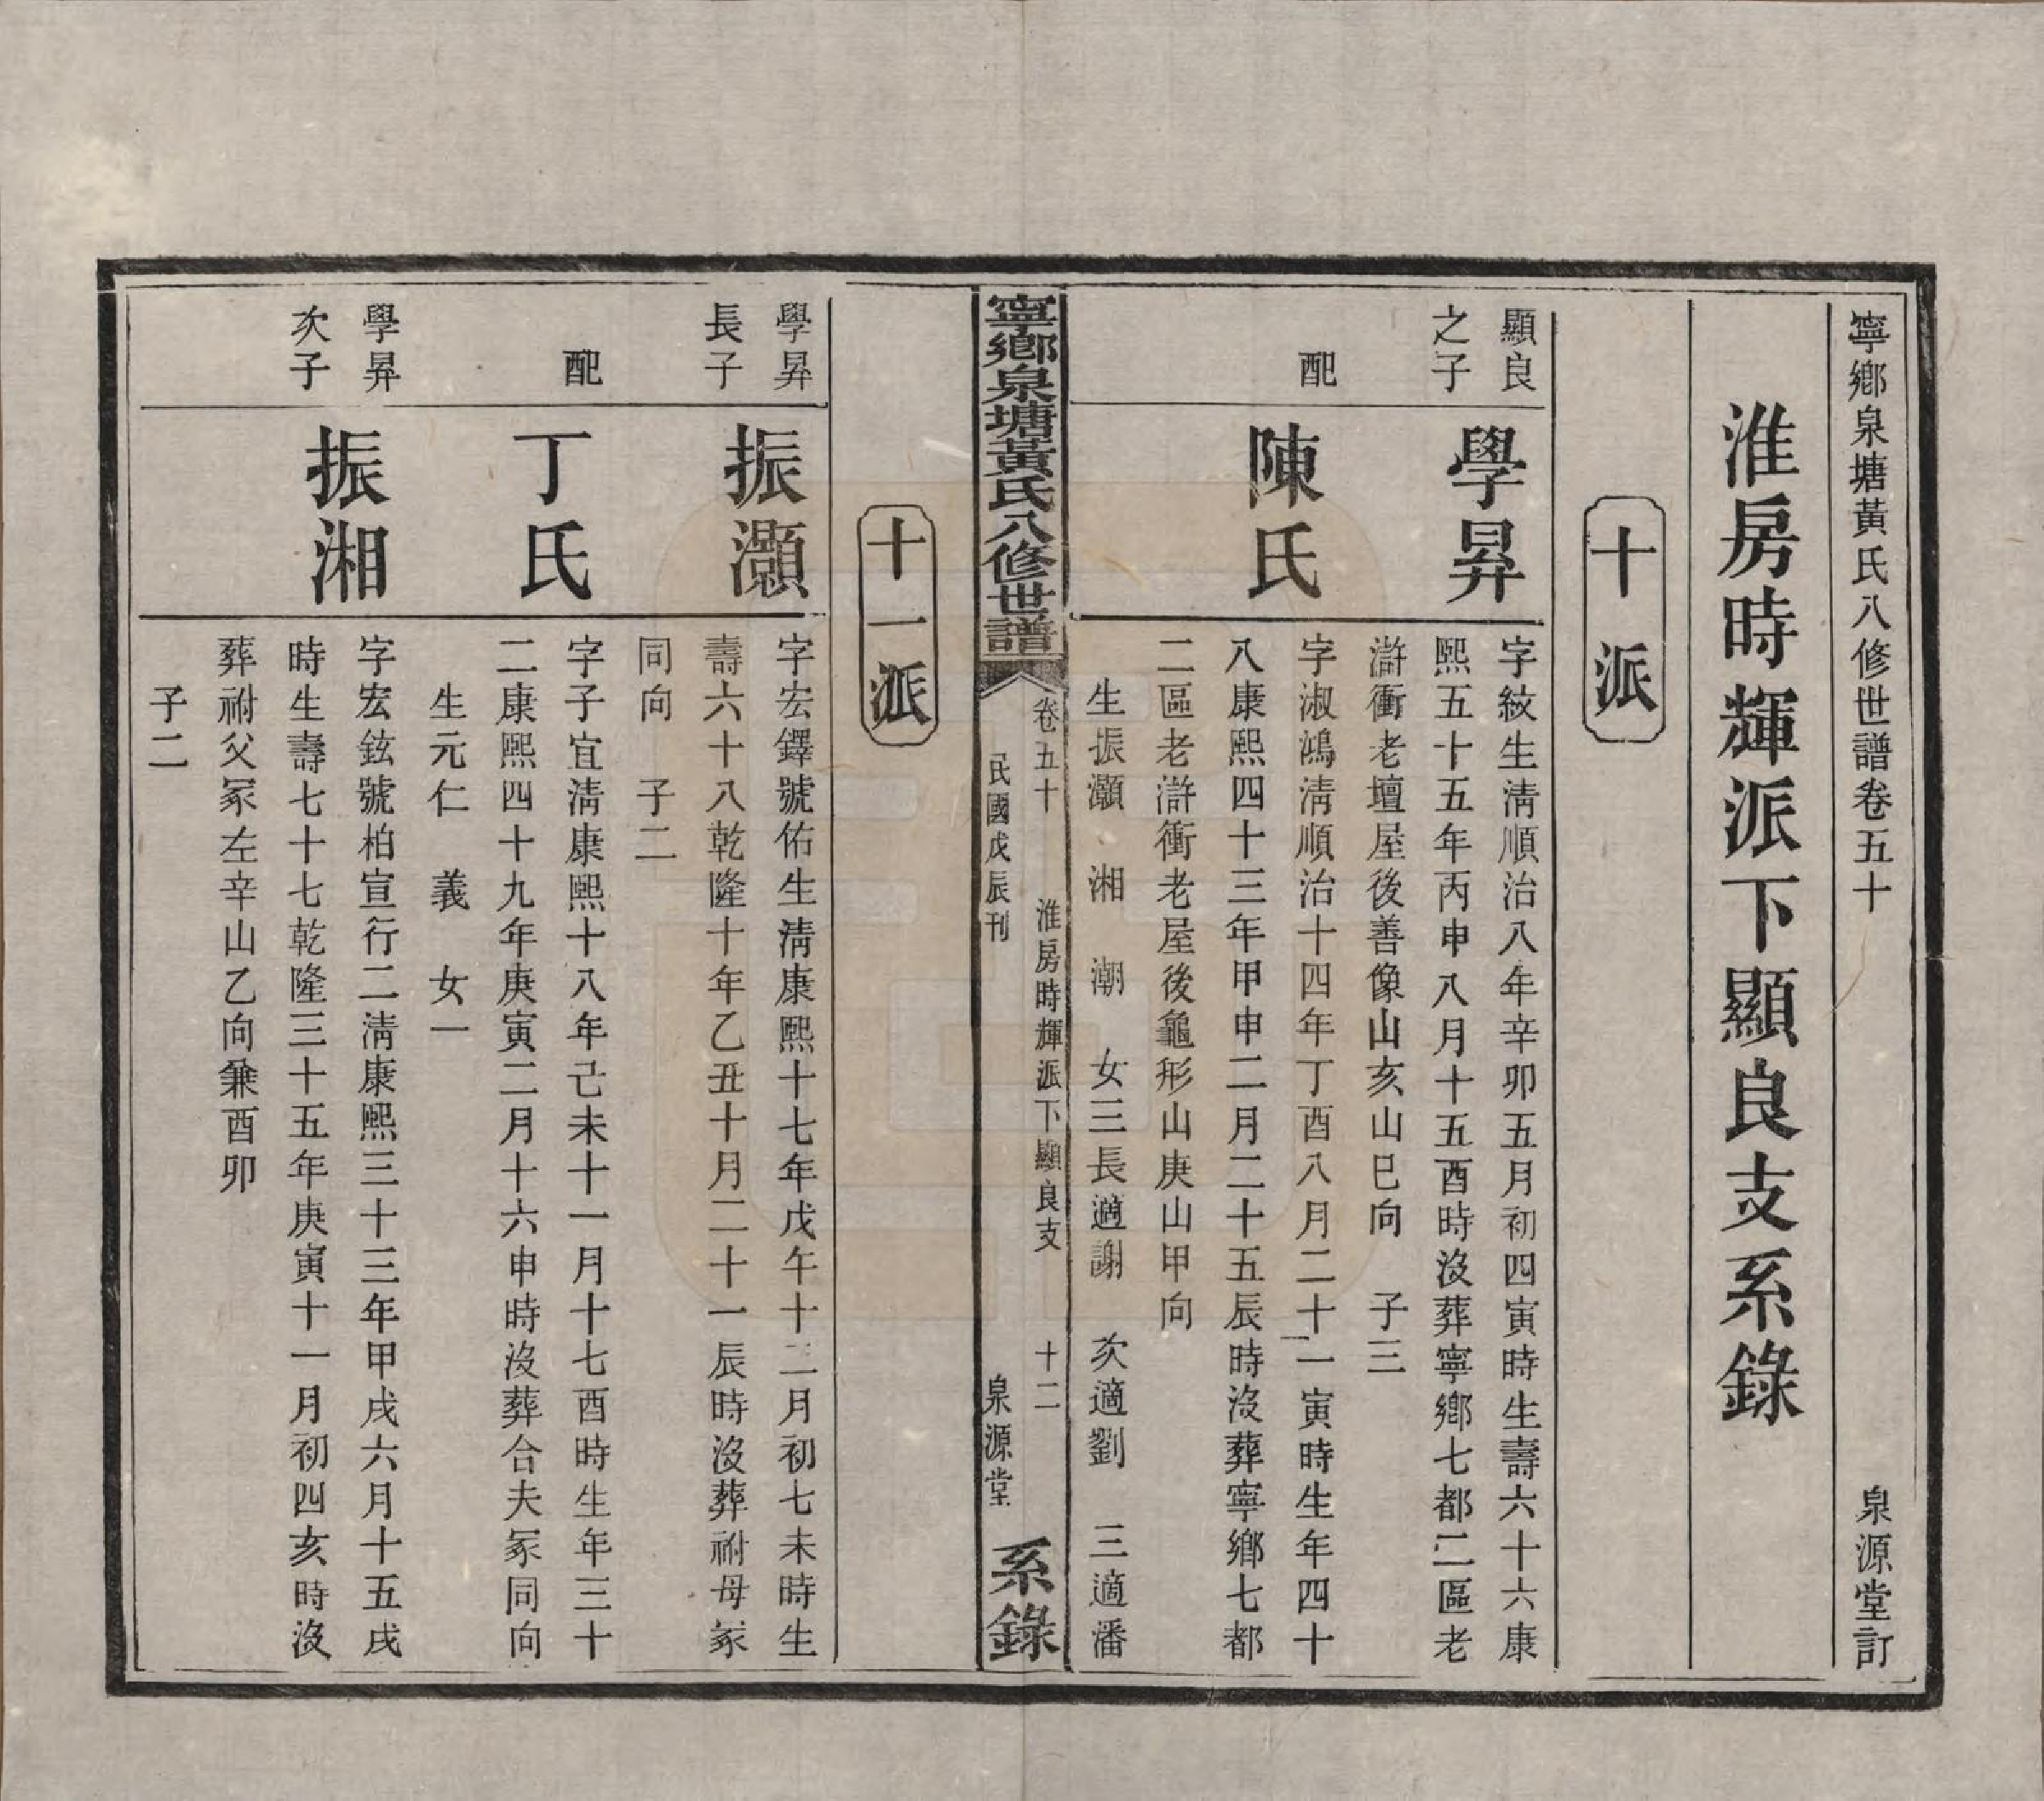 寧鄉泉塘黃氏八修世譜卷五十　泉源堂訂
淮房時輝派下顯良支系錄
十派
顯良
之子
學昇
字紋生淸順治八年辛卯五月初四寅時生壽六十六康
熙五十五年丙申八月十五酉時沒葬寧鄉七都二區老
滸衝老壇屋後善像山亥山巳向　子三
配
陳氏
字淑鴻淸順治十四年丁酉八月二十一寅時生年四十
八康熙四十三年甲申二月二十五辰時沒葬寧鄉七都
二區老滸衝老屋後龜形山庚山甲向
生振灝　湘　潮　女三長適謝　次適劉　三適潘
寧鄉泉塘黃氏八修世譜
卷五十　淮房時輝派下顯良支　十二
民國戊辰刊　泉源堂
系錄
十一派
學昇
長子
振灝
字宏鐸號佑生淸康熙十七年戊午十二月初七未時生
壽六十八乾隆十年乙丑十月二十一辰時沒葬祔母冢
同向　子二
配
丁氏
字子宜淸康熙十八年己未十一月十七酉時生年三十
二康熙四十九年庚寅二月十六申時沒葬合夫冢同向
生元仁　義　女一
學昇
次子
振湘
字宏鉉號柏宣行二淸康熙三十三年甲戌六月十五戌
時生壽七十七乾隆三十五年庚寅十一月初四亥時沒
葬祔父冢左辛山乙向兼酉卯
子二